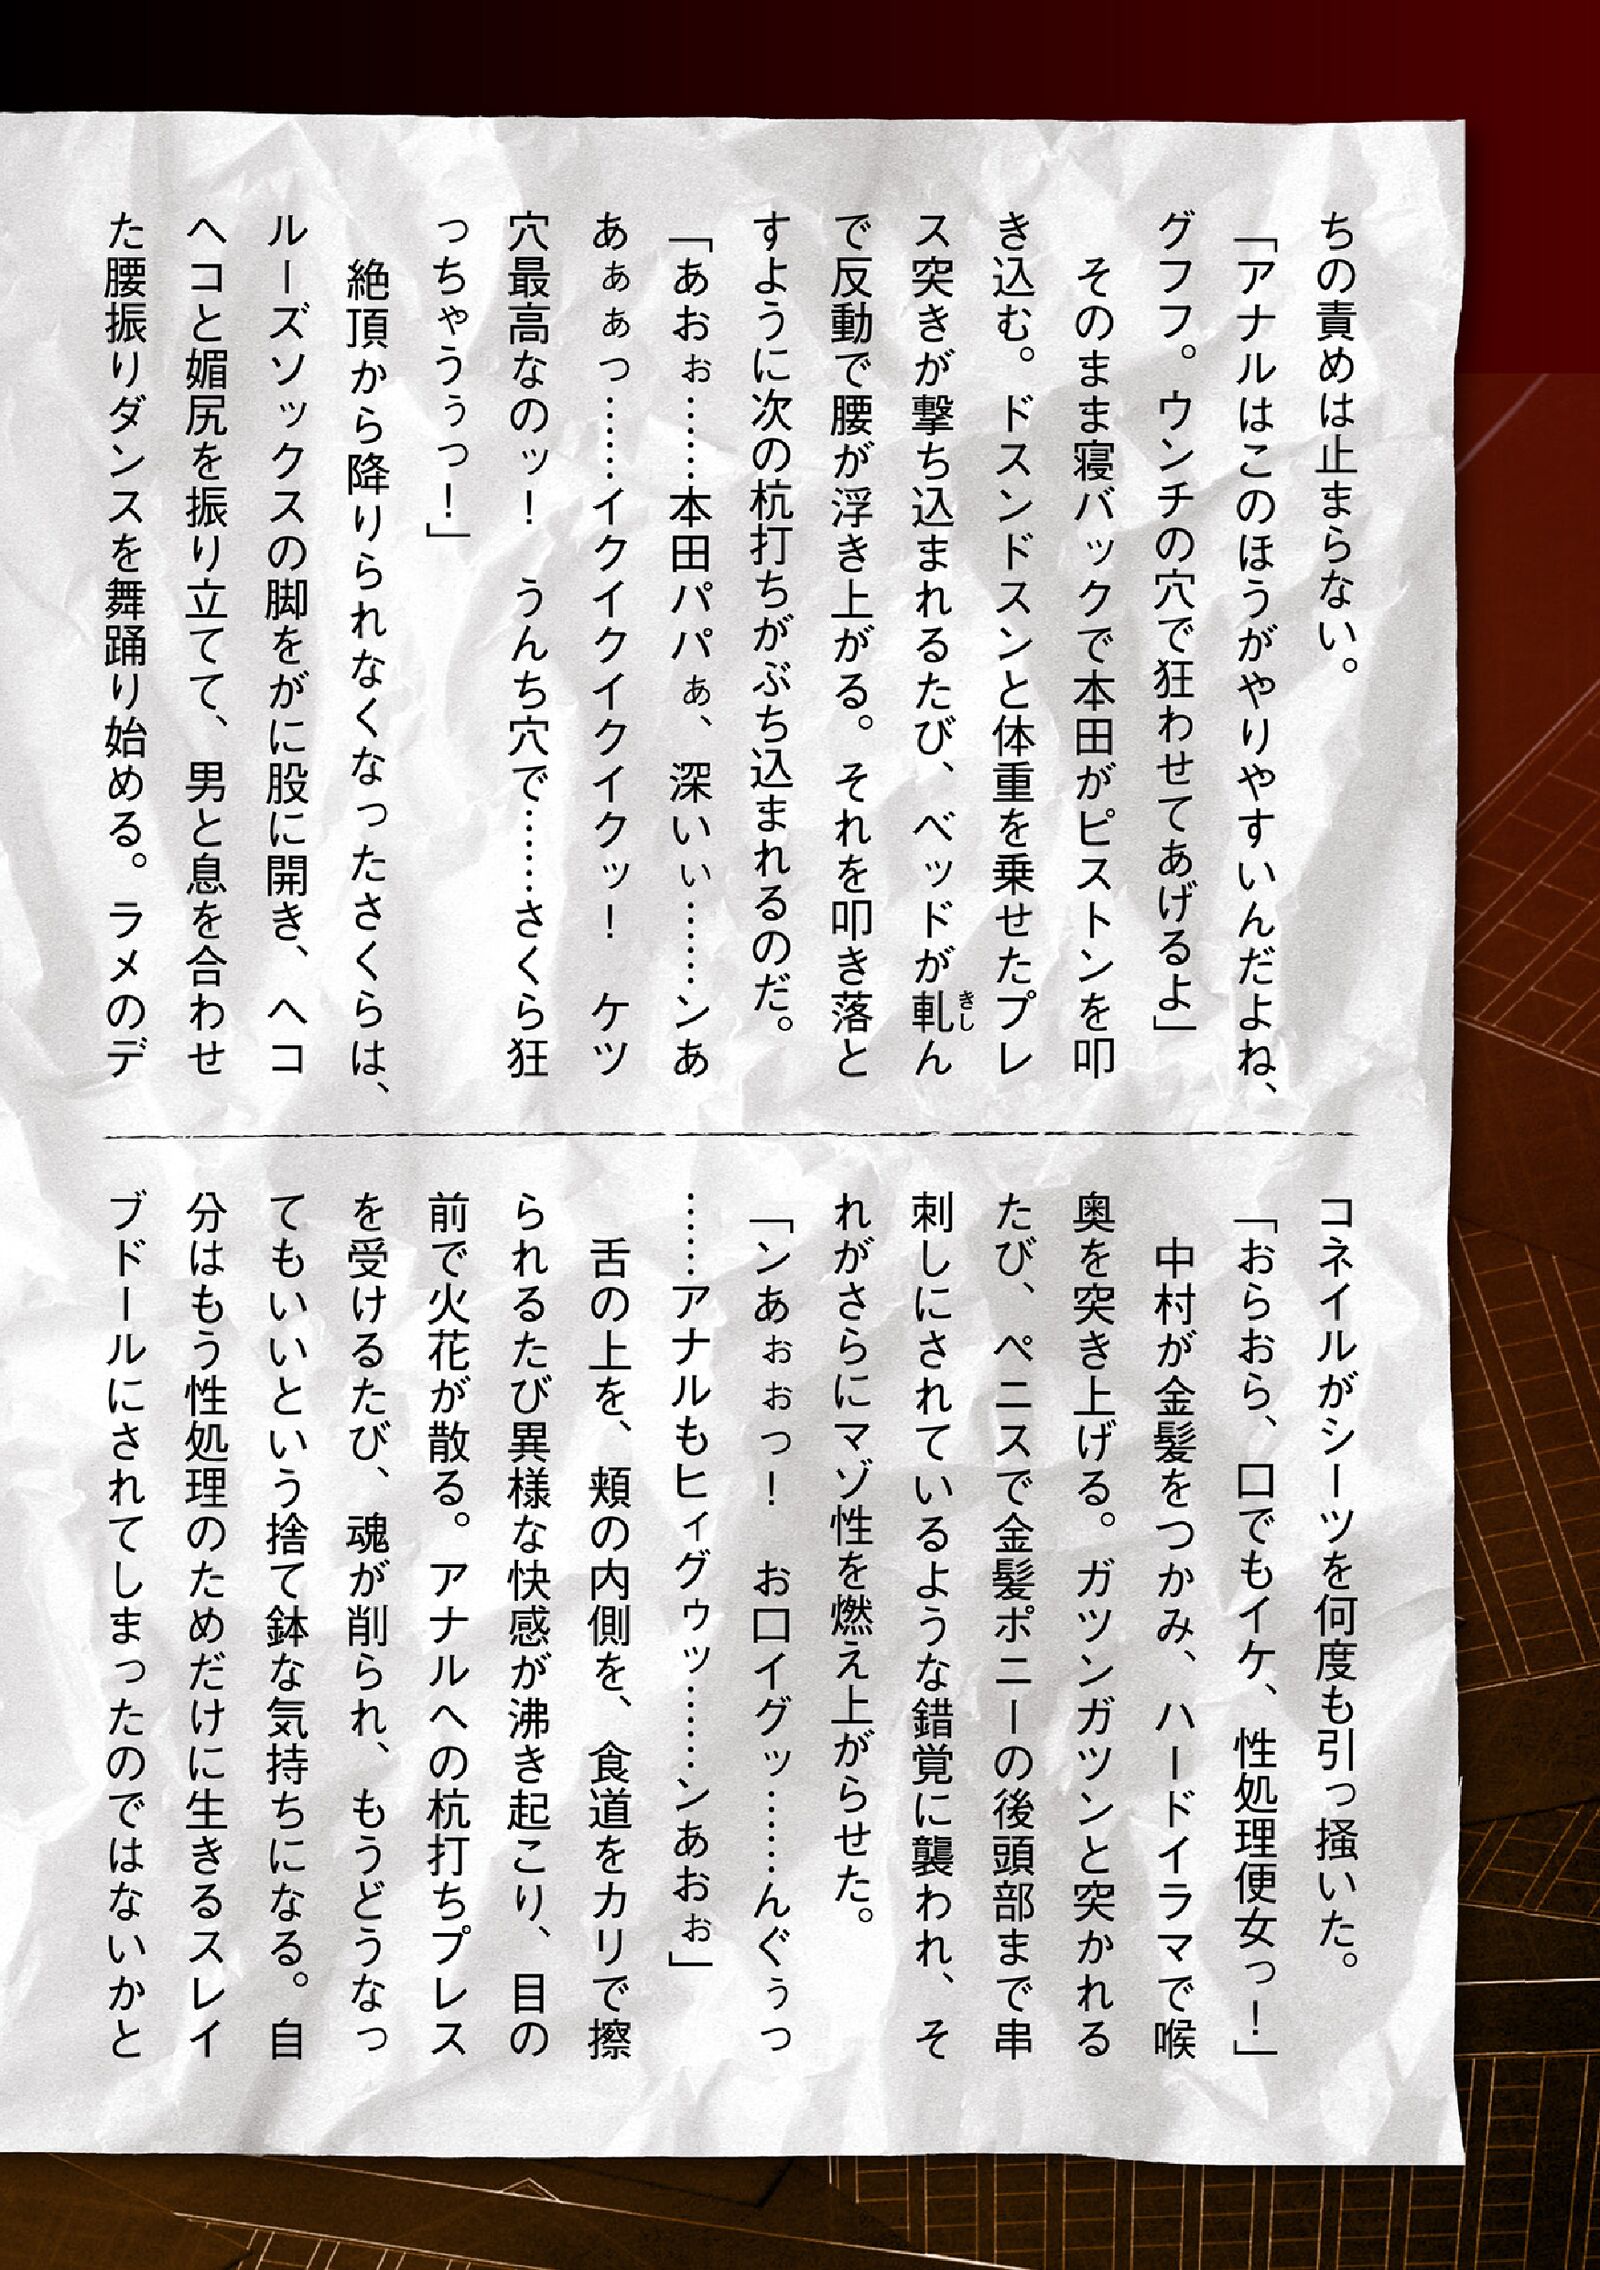 ちの責めは止まらない。
「アナルはこのほうがやりやすいんだよね、
グフフ。ウンチの穴で狂わせてあげるよ」
　そのまま寝バックで本田がピストンを叩
き込む。ドスンドスンと体重を乗せたプレ
ス突きが撃ち込まれるたび、ベッドが軋きしん
で反動で腰が浮き上がる。それを叩き落と
すように次の杭打ちがぶち込まれるのだ。
「あおぉ……本田パパぁ、深いぃ……ンあ
あぁぁっ……イクイクイクイクッ！　ケツ
穴最高なのッ！　うんち穴で……さくら狂
っちゃうぅっ！」
　絶頂から降りられなくなったさくらは、
ルーズソックスの脚をがに股に開き、ヘコ
ヘコと媚尻を振り立てて、男と息を合わせ
た腰振りダンスを舞踊り始める。ラメのデ
コネイルがシーツを何度も引っ掻いた。
「おらおら、口でもイケ、性処理便女っ！」
　中村が金髪をつかみ、ハードイラマで喉
奥を突き上げる。ガツンガツンと突かれる
たび、ペニスで金髪ポニーの後頭部まで串
刺しにされているような錯覚に襲われ、そ
れがさらにマゾ性を燃え上がらせた。
「ンあぉぉっ！　お口イグッ……んぐぅっ
……アナルもヒィグゥッ……ンあおぉ」
　舌の上を、頬の内側を、食道をカリで擦
られるたび異様な快感が沸き起こり、目の
前で火花が散る。アナルへの杭打ちプレス
を受けるたび、魂が削られ、もうどうなっ
てもいいという捨て鉢な気持ちになる。自
分はもう性処理のためだけに生きるスレイ
ブドールにされてしまったのではないかと